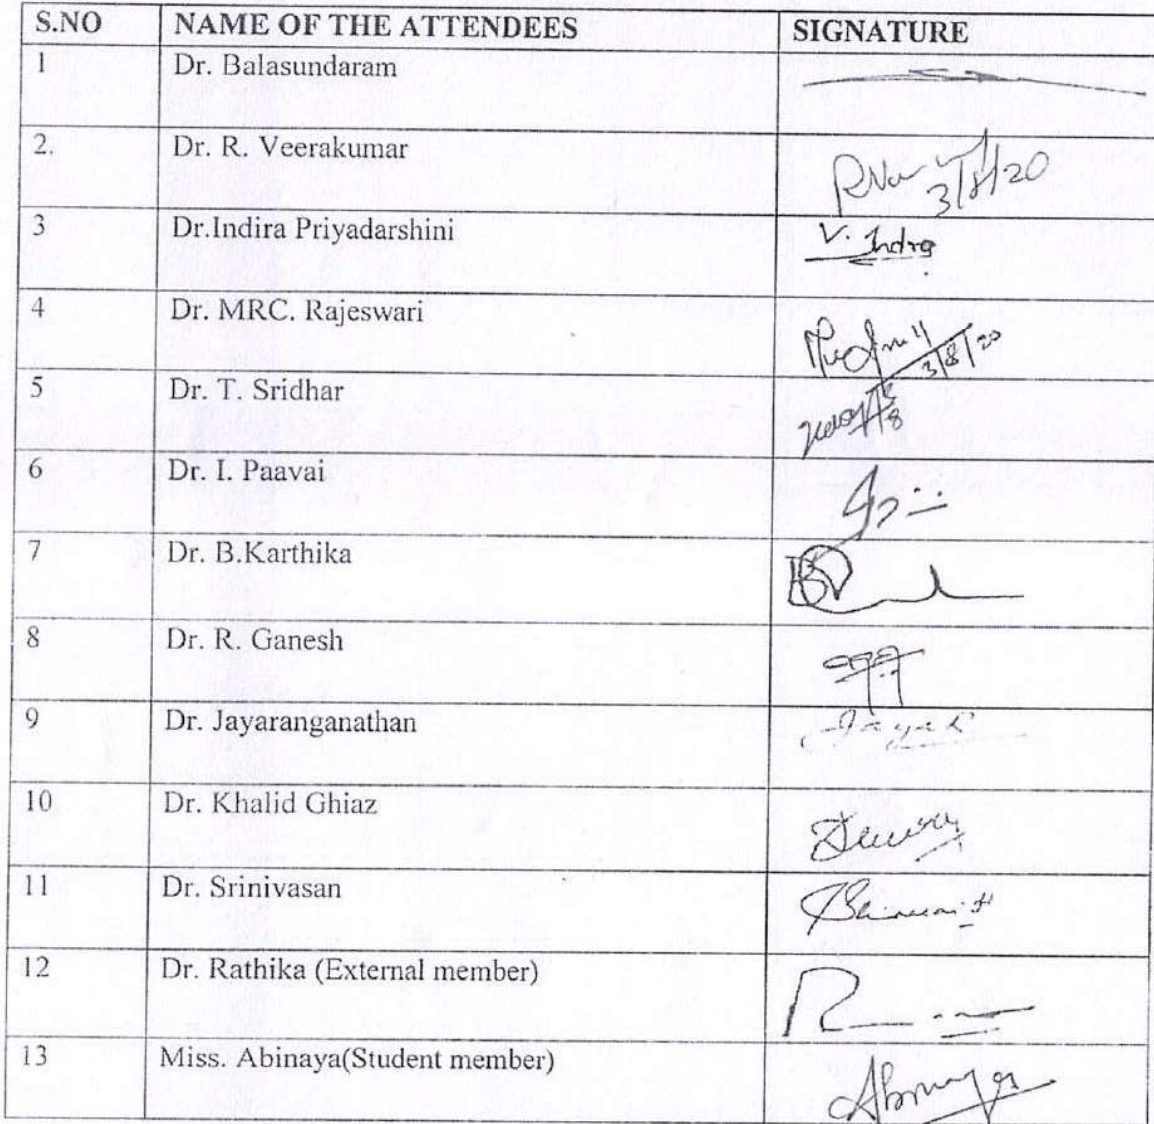 S.NO NAME OF THE ATTENDEES SIGNATURE
1 Dr. Balasundaram
2. Dr. R. Veerakumar 3/8/20
3 Dr.Indira Priyadarshini V. Indra
4 Dr. MRC. Rajeswari 3/8/20
5 Dr. T. Sridhar
6 Dr. I. Paavai
7 Dr. B.Karthika
8 Dr. R. Ganesh
9 Dr. Jayaranganathan
10 Dr. Khalid Ghiaz
11 Dr. Srinivasan
12 Dr. Rathika (External member)
13 Miss. Abinaya(Student member)